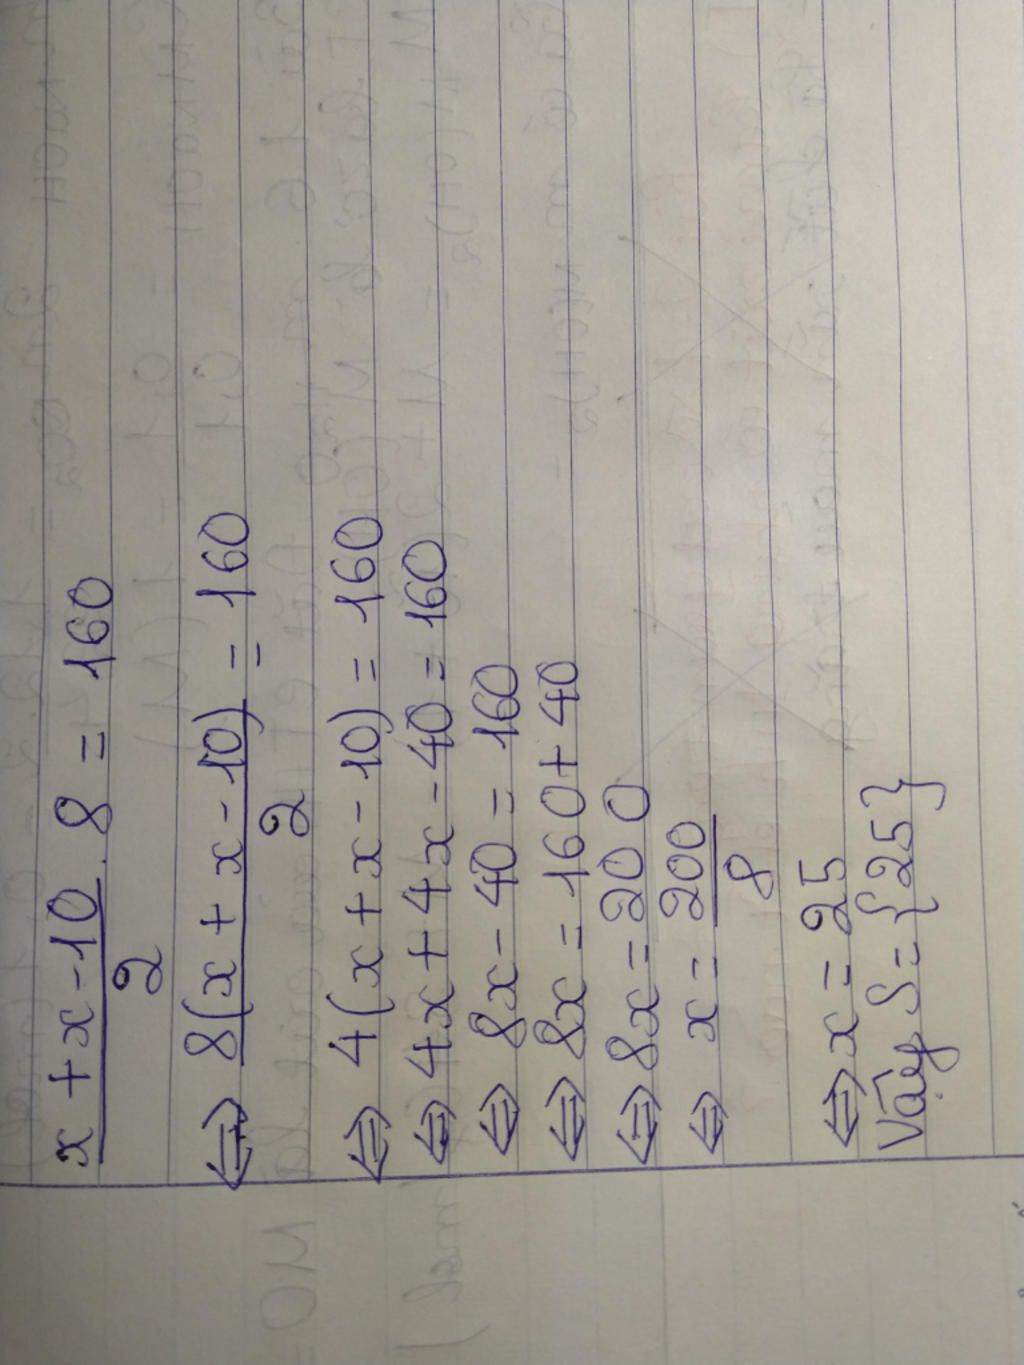 x + x - 10 / 2 . 8 = 160
⇔ 8(x + x - 10) / 2 = 160
⇔ 4(x + x - 10) = 160
⇔ 4x + 4x - 40 = 160
⇔ 8x - 40 = 160
⇔ 8x = 160 + 40
⇔ 8x = 200
⇔ x = 200 / 8
⇔ x = 25
Vậy S = {25}